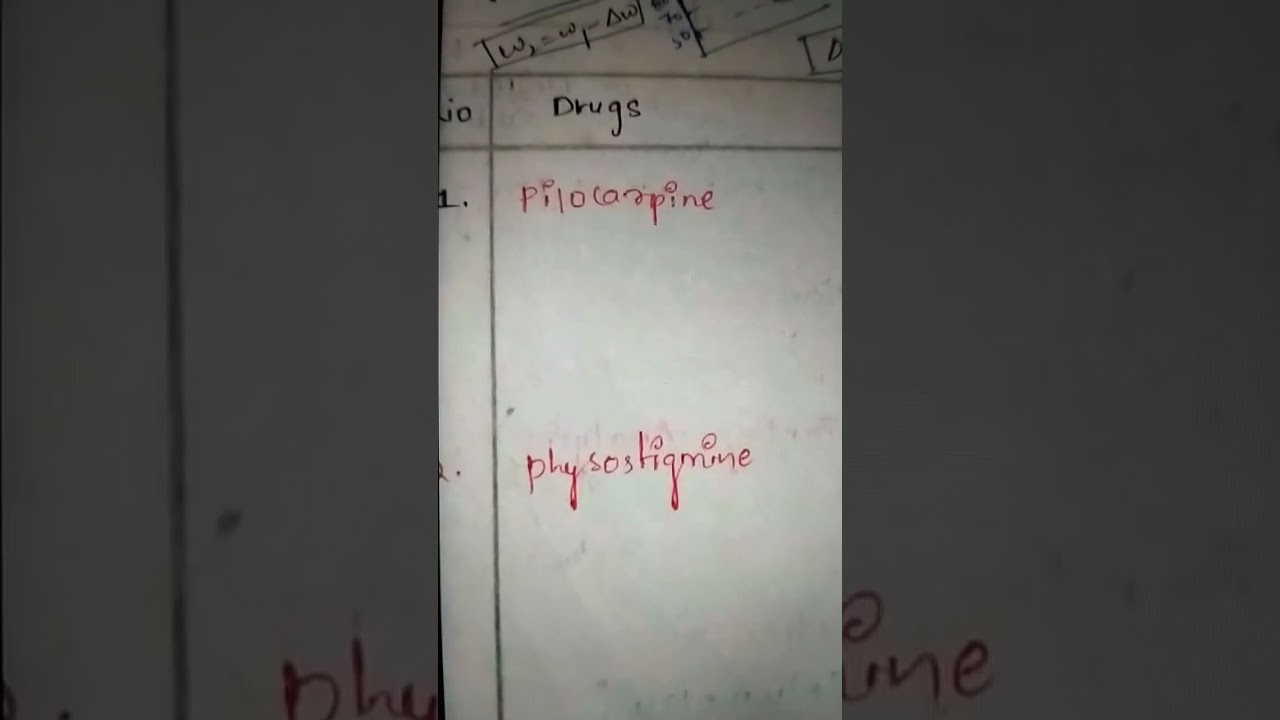 w₂ = w₁ - Δw
D
io Drugs
1. Pilocarpine
2. physostigmine